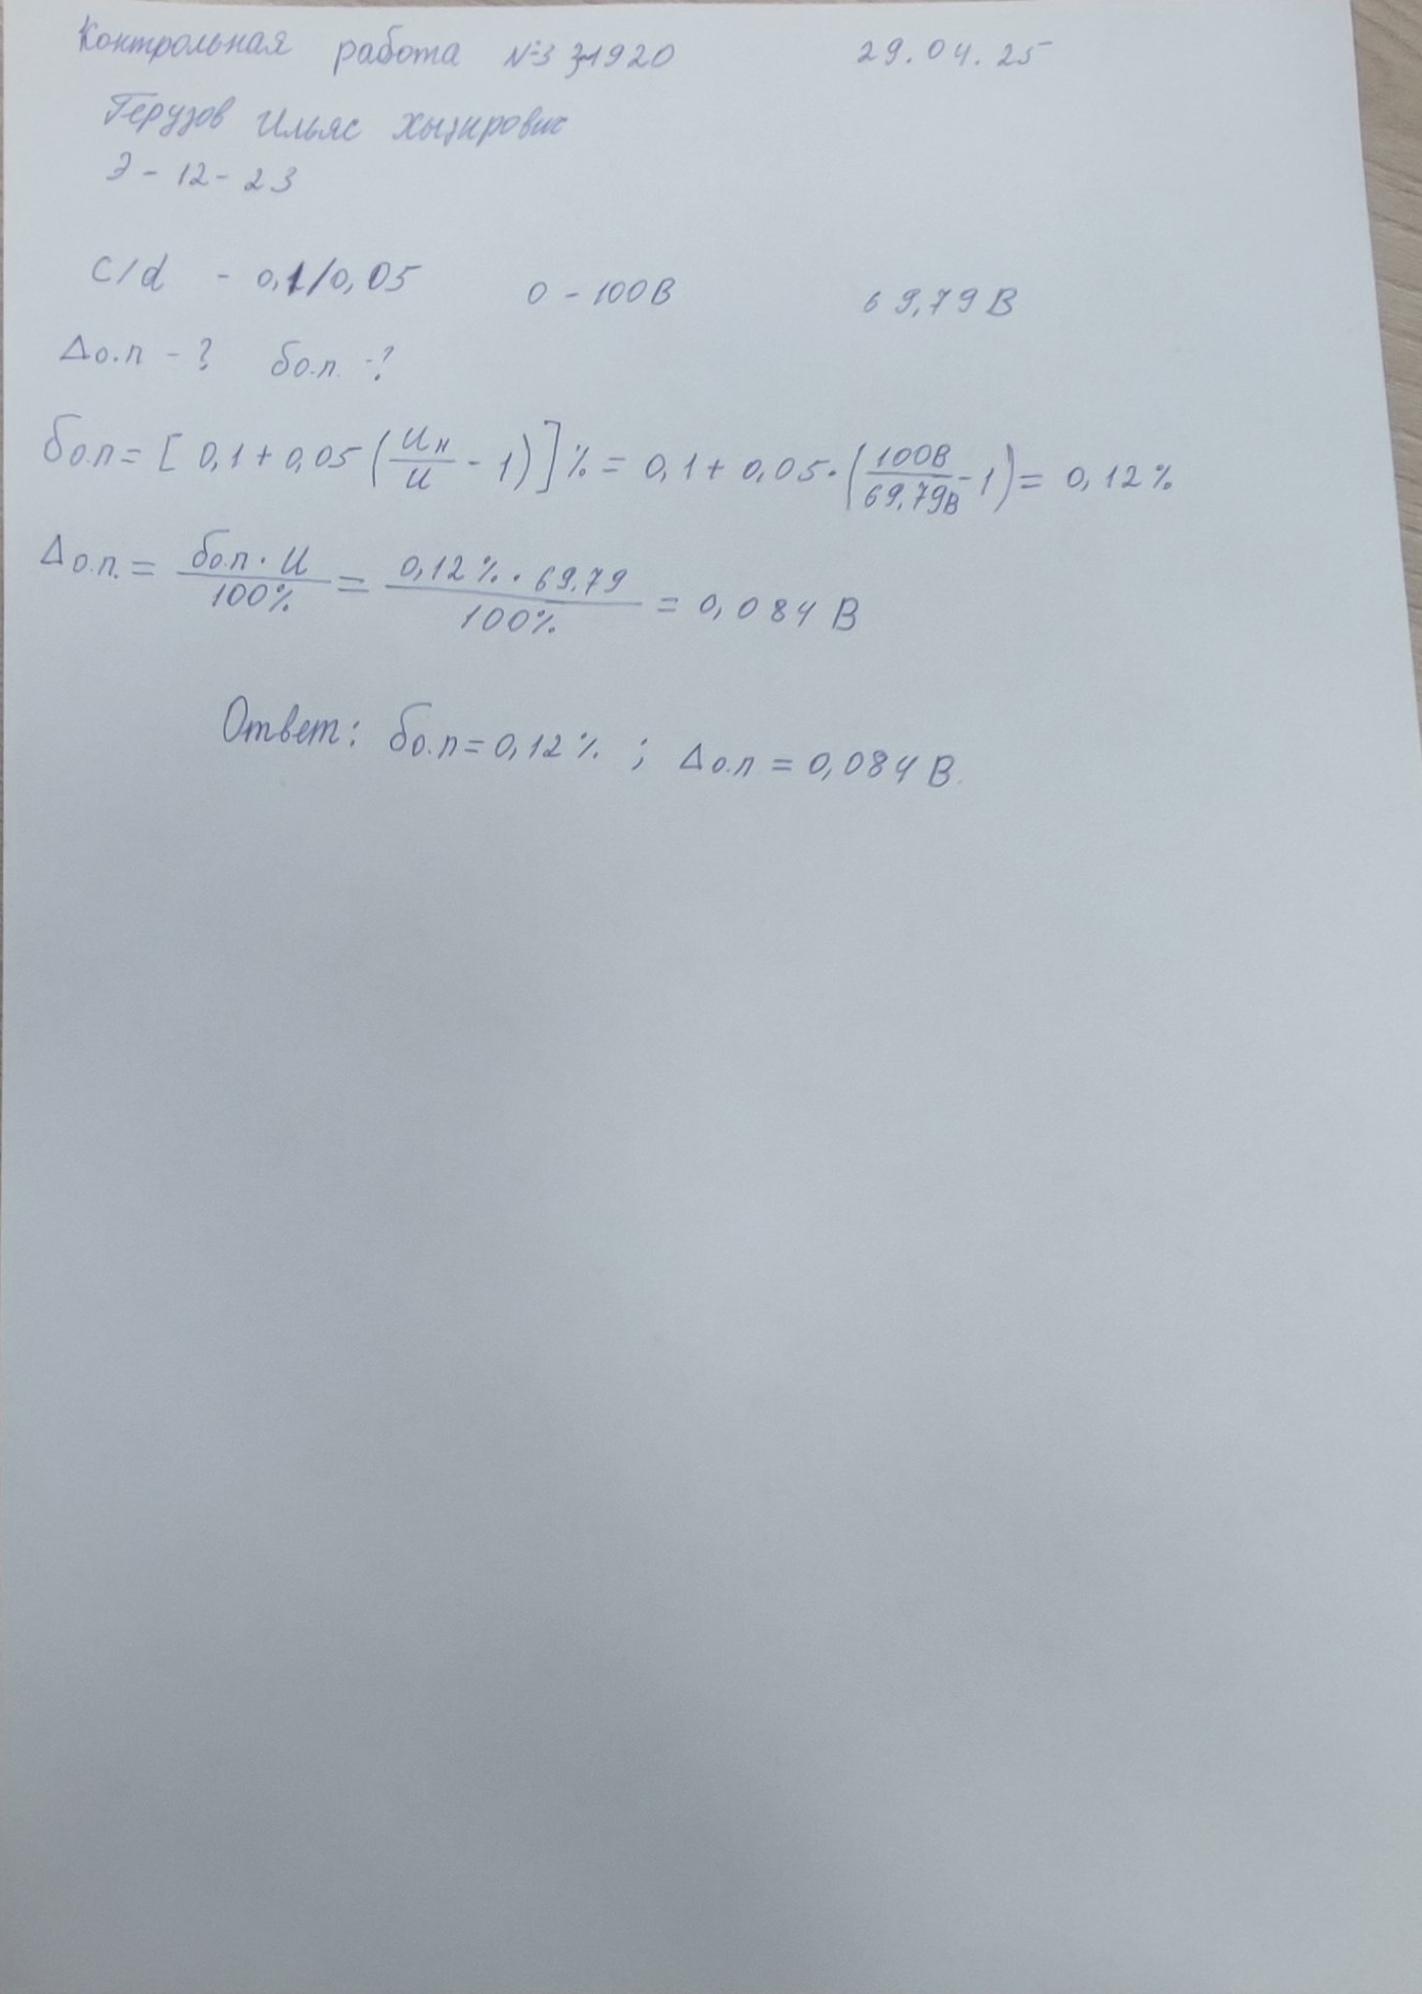 Контрольная работа №3 31920 29.04.25
Герузов Ильяс Хызирович
Э - 12 - 23
c/d - 0,1/0,05 0 - 100В 69,79 В
Δо.п - ? δо.п. - ?
δо.п = [ 0,1 + 0,05 (Uн/U - 1)] % = 0,1 + 0,05 · (100В/69,79В - 1) = 0,12 %
Δо.п. = δо.п · U / 100% = 0,12 % · 69,79 / 100% = 0,084 В
Ответ: δо.п = 0,12 % ; Δо.п = 0,084 В.